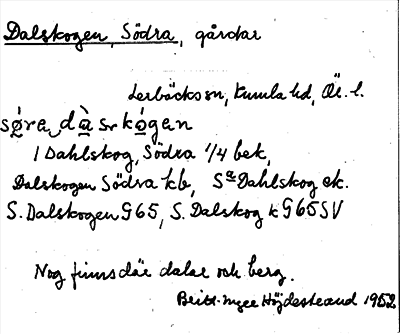 Dalskogen, Södra, gårdar
Lerbäcks sn, Kumla hd, Ör. l.
sø̀re dàskógen
1 Dahlskog, Södra 1/4 bek,
Dalskogen Södra kb, Sa Dahlskog ek.
S. Dalskogen G65, S. Dalskog k G65 SV
Nog finns där dalar och berg.
Britt-Inger Höjdestrand 1952